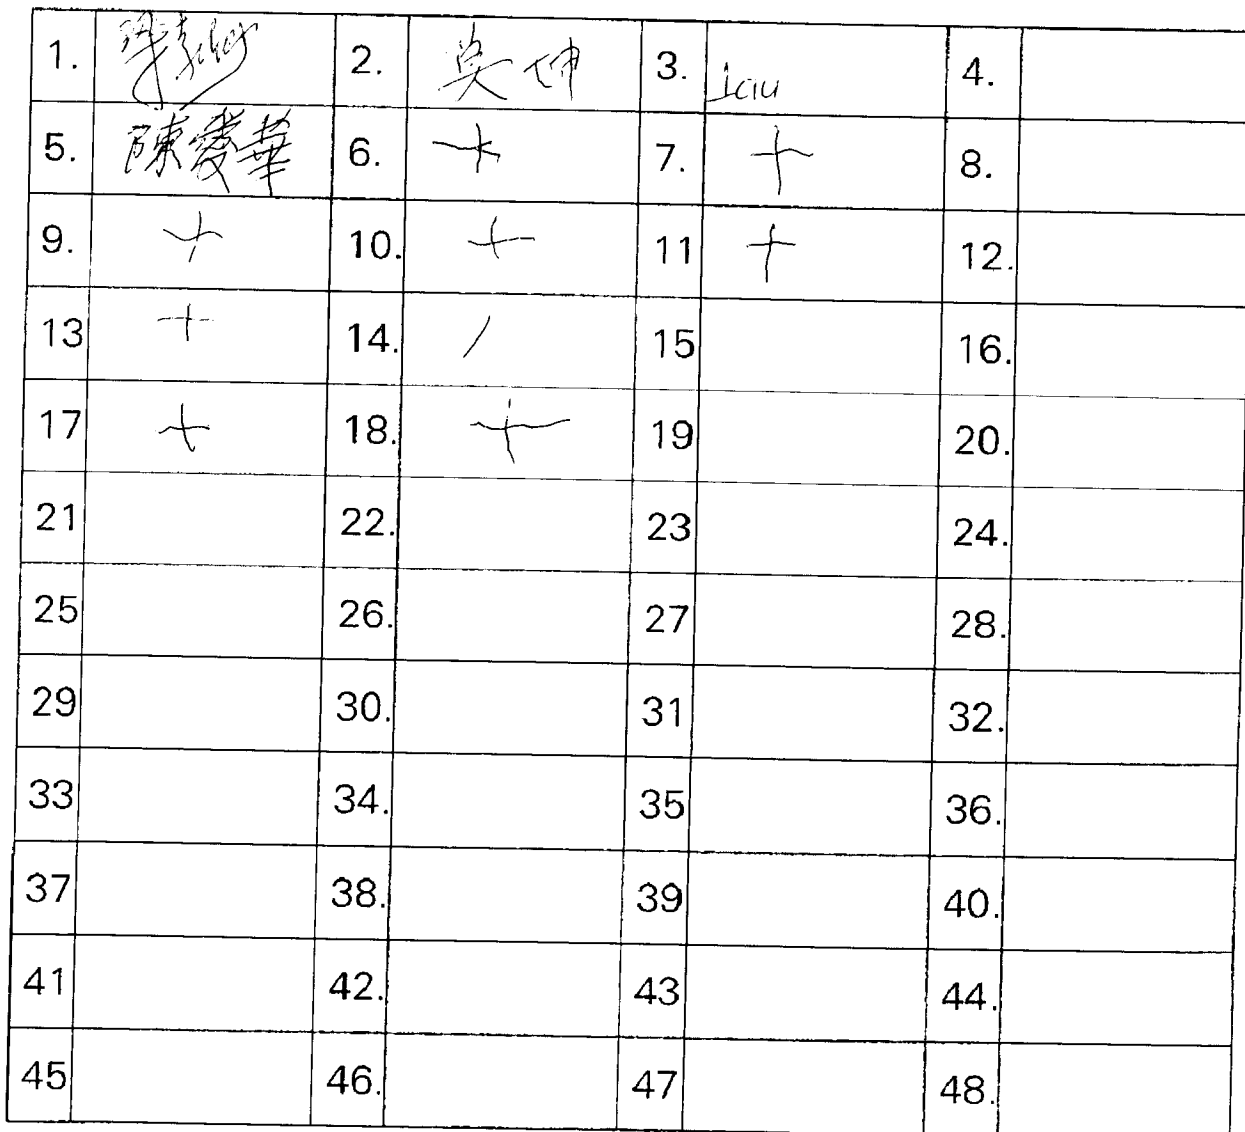 1. 2. 吳坤 3. Lau 4.
5. 陳愛華 6. 十 7. 十 8.
9. 十 10. 十 11 十 12.
13 十 14. / 15 16.
17 十 18. 十 19 20.
21 22. 23 24.
25 26. 27 28.
29 30. 31 32.
33 34. 35 36.
37 38. 39 40.
41 42. 43 44.
45 46. 47 48.